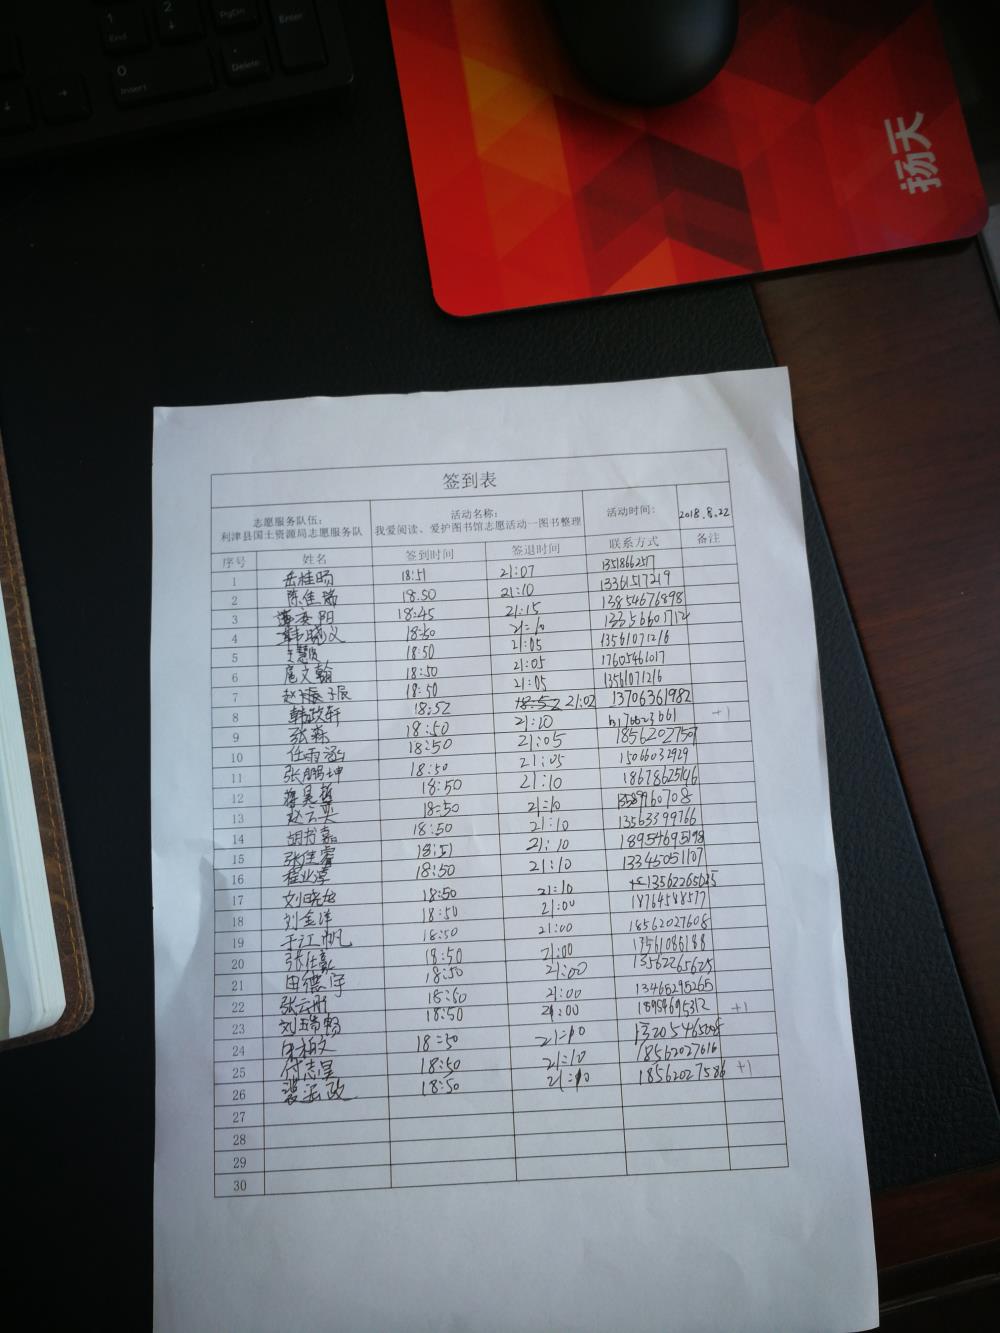 1 End
2 ↓
PgDn
Enter
0 Insert
. Delete
扬天
签到表
志愿服务队伍： 利津县国土资源局志愿服务队 活动名称： 我爱阅读、爱护图书馆志愿活动一图书整理 活动时间： 2018.8.22
序号 姓名 签到时间 签退时间 联系方式 备注
1 岳桂旸 18:51 21:07 1351866257
2 陈佳瑞 18:50 21:10 13361517219
3 18:45 21:15 13854676898
4 韩晓义 18:50 21:10 13356607712
5 王慧 18:50 21:05 13561071216
6 扈文翰 18:50 21:05 17605461017
7 赵振辰 18:50 21:05 13561071216
8 韩政轩 18:52 18:52 21:02 13706361982
9 张森 18:50 21:10 +1
10 任雨涵 18:50 21:05 18562027507
11 张鹏坤 18:50 21:05 15066032929
12 18:50 21:10 18678625196
13 赵云奕 18:50 21:10 13589960708
14 胡书嘉 18:50 21:10 13563399766
15 张佳睿 18:51 21:10 18954695198
16 程业泽 18:50 21:10 13345051107
17 刘晓龙 18:50 21:10 13562265625
18 刘金洋 18:50 21:00 18764588577
19 于江帆 18:50 21:00 18562027608
20 张仕嘉 18:50 21:00 13561086188
21 田德宇 18:50 21:00 13562265625
22 张云彤 18:50 21:00 13465295265
23 刘瑞畅 18:50 21:00 18958695312 +1
24 宋柏文 18:50 21:10
25 付志昱 18:50 21:10 18562027616
26 裴涵政 18:50 21:10 18562027586 +1
27
28
29
30